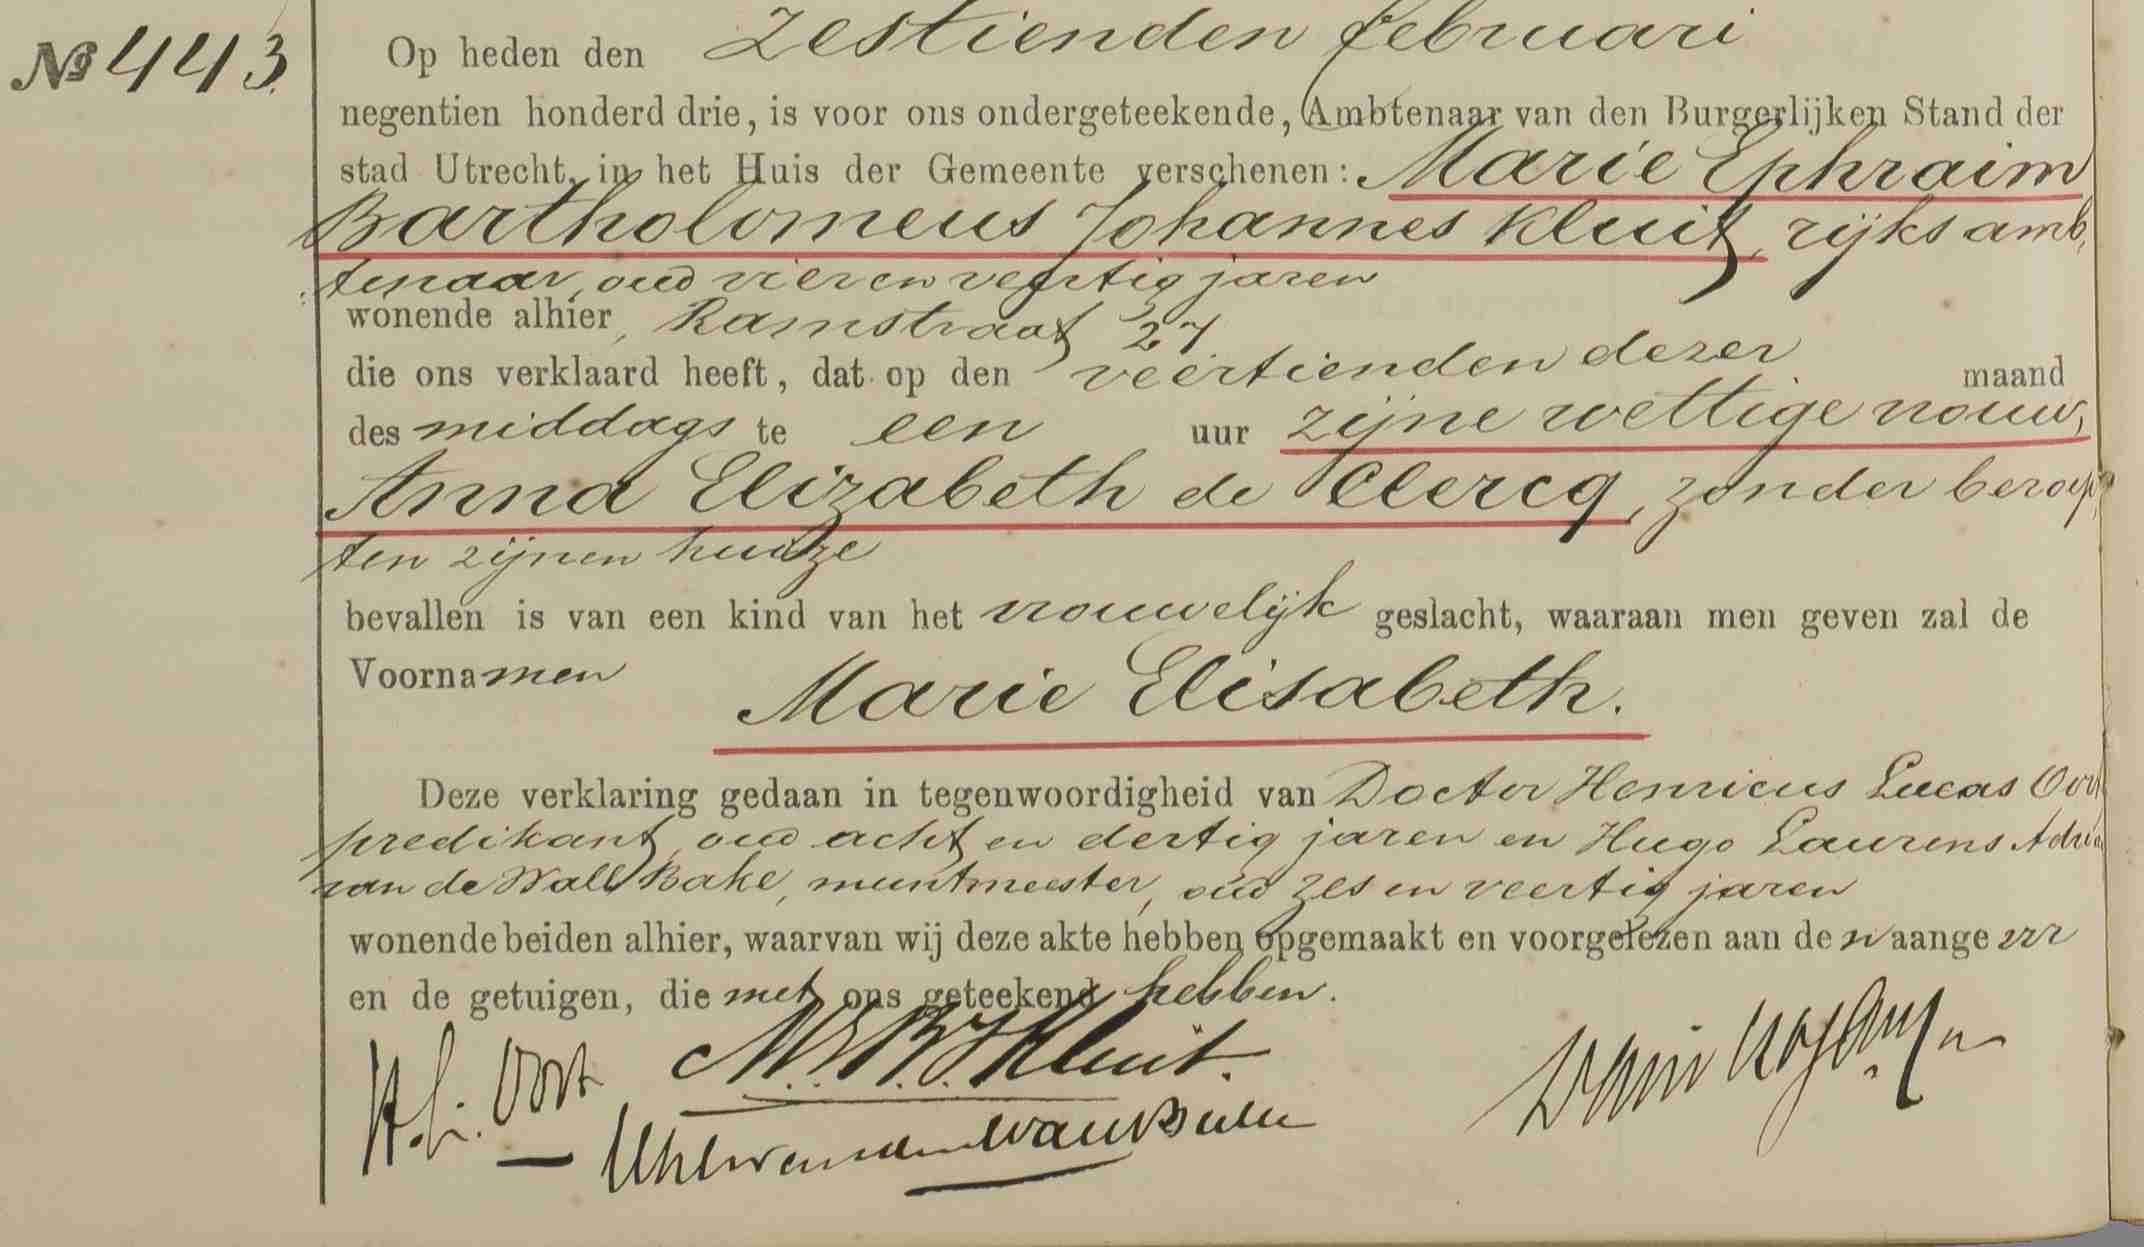 No 443.
Op heden den zestienden februari
negentien honderd drie, is voor ons ondergeteekende, Ambtenaar van den Burgerlijken Stand der
stad Utrecht, in het Huis der Gemeente verschenen: Marie Ephraim
Bartholomeus Johannes Kluit, rijks amb,
tenaar, oud vier en veertig jaren
wonende alhier, Ramstraat 27
die ons verklaard heeft, dat op den veertienden dezer maand
des middags te een uur zijne wettige vrouw,
Anna Elizabeth de Clercq, zonder beroep,
ten zijnen huize
bevallen is van een kind van het vrouwelijk geslacht, waaraan men geven zal de
Voornamen
Marie Elisabeth.
Deze verklaring gedaan in tegenwoordigheid van Doctor Henricus Lucas Oort
predikant, oud acht en dertig jaren en Hugo Laurens
van de Wall Bake, muntmeester, oud zes en veertig jaren
wonende beiden alhier, waarvan wij deze akte hebben opgemaakt en voorgelezen aan den aangever
en de getuigen, die met ons geteekend hebben.
H. L. Oort M. E. B. J. Kluit.